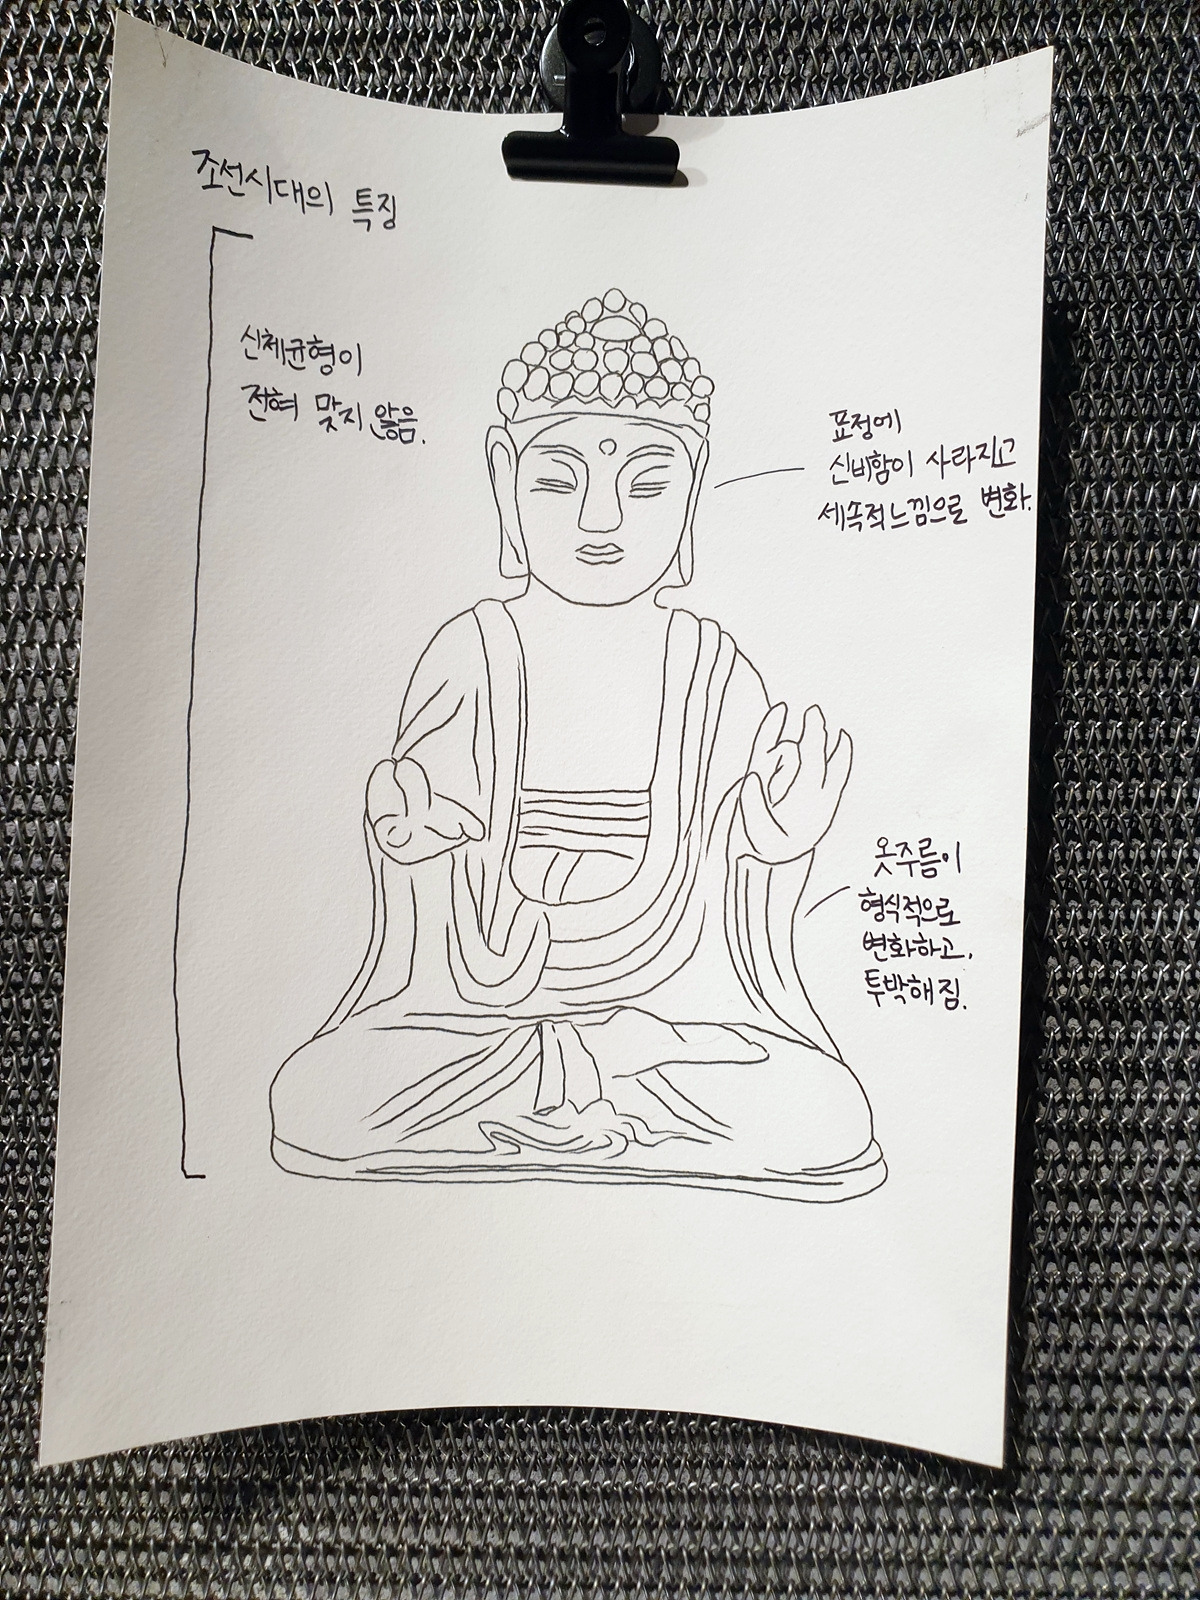 조선시대의 특징
신체균형이
전혀 맞지 않음.
표정에
신비함이 사라지고
세속적느낌으로 변화.
옷주름이
형식적으로
변화하고,
투박해짐.